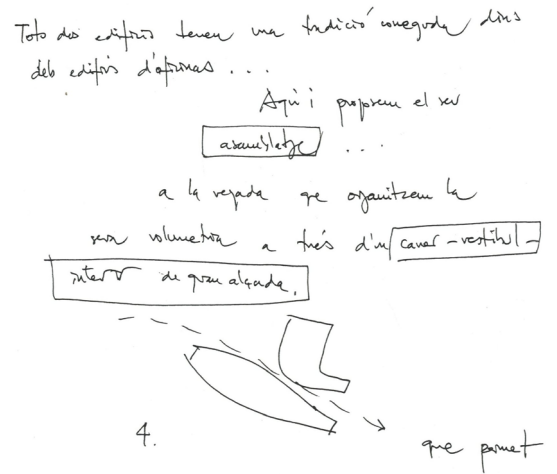 Tots dos edificis tenen una tradició coneguda dins
dels edificis d'oficines . . .
Aquí proposem el seu
assemblatge . . .
a la vegada que organitzem la
seva volumetria a través d'un carrer - vestíbul -
interior de gran alçada.
4.
que permet